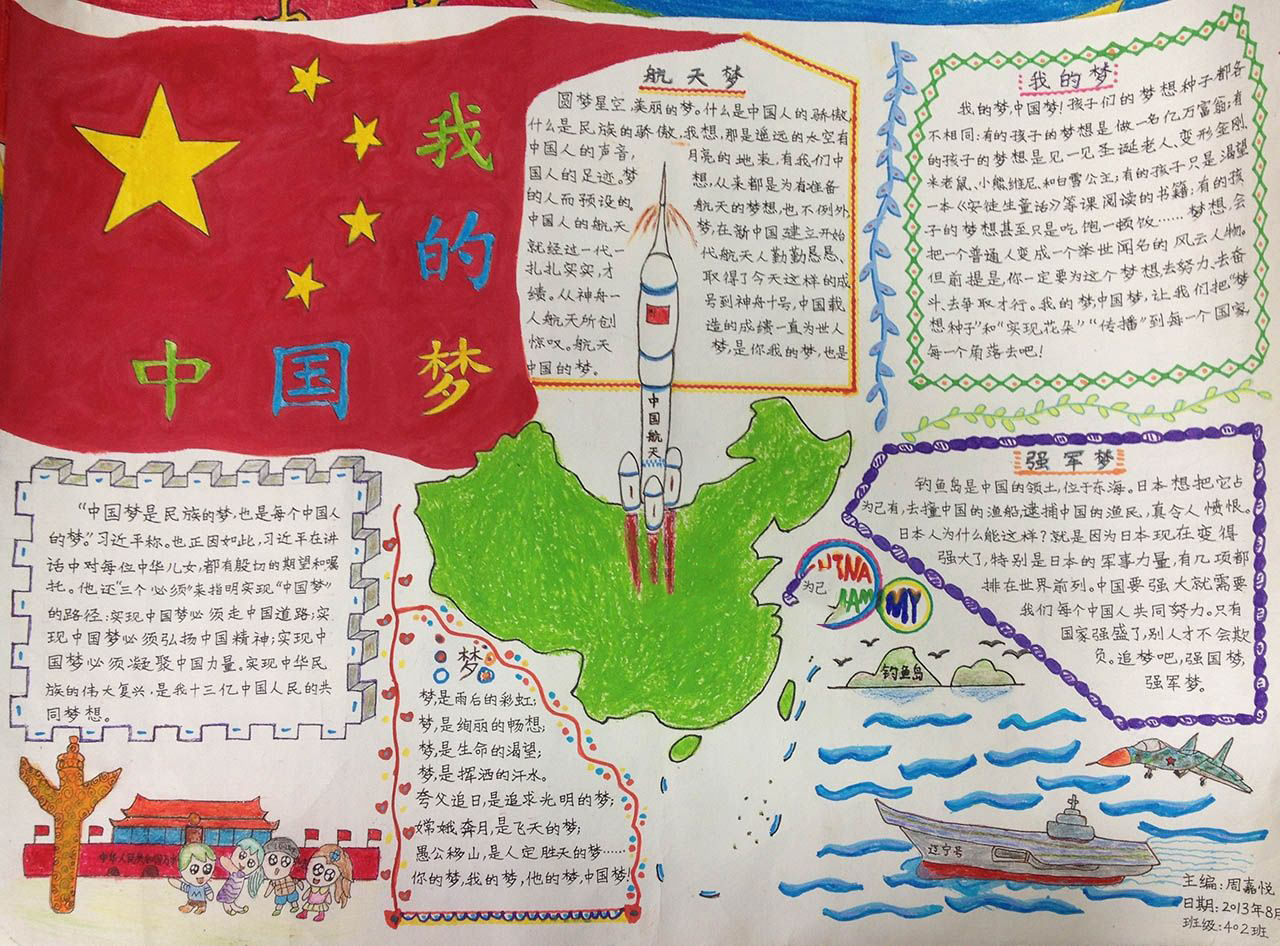 我
的
中国梦
航天梦
圆梦星空,美丽的梦。什么是中国人的骄傲,
什么是民族的骄傲,我想,那是遥远的太空有
中国人的声音, 月亮的地表,有我们中
国人的足迹。梦 想,从来都是为有准备
的人而预设的。 航天的梦想,也不例外,
中国人的航天 梦,在新中国建立开始
就经过一代一 代航天人勤勤恳恳、
扎扎实实,才 取得了今天这样的成
绩。从神舟一 号到神舟十号,中国载
人航天所创 造的成绩一直为世人
惊叹。航天 梦,是你我的梦,也是
中国的梦。
中国航天
我的梦
我的梦,中国梦!孩子们的梦想种子都各
不相同:有的孩子的梦想是做一名亿万富翁;有
的孩子的梦想是见一见圣诞老人、变形金刚、
米老鼠、小熊维尼、和白雪公主;有的孩子只是渴望
一本《安徒生童话》等课阅读的书籍;有的孩
子的梦想甚至只是吃饱一顿饭……梦想,会
把一个普通人变成一个举世闻名的风云人物。
但前提是,你一定要为这个梦想去努力、去奋
斗、去争取才行。我的梦,中国梦,让我们把“梦
想种子”和“实现花朵”“传播”到每一个国家,
每一个角落去吧!
“中国梦是民族的梦,也是每个中国人
的梦。”习近平称。也正因如此,习近平在讲
话中对每位中华儿女,都有殷切的期望和嘱
托。他还“三个必须”来指明实现“中国梦”
的路径:实现中国梦必须走中国道路;实
现中国梦必须弘扬中国精神;实现中
国梦必须凝聚中国力量。实现中华民
族的伟大复兴,是我十三亿中国人民的共
同梦想。
梦
梦,是雨后的彩虹;
梦,是绚丽的畅想;
梦,是生命的渴望;
梦,是挥洒的汗水。
夸父追日,是追求光明的梦;
嫦娥奔月,是飞天的梦;
愚公移山,是人定胜天的梦……
你的梦,我的梦,他的梦,中国梦!
强军梦
钓鱼岛是中国的领土,位于东海。日本想把它占
为己有,去撞中国的渔船,逮捕中国的渔民,真令人愤恨。
日本人为什么能这样?就是因为日本现在变得
强大了,特别是日本的军事力量,有几项都
排在世界前列。中国要强大就需要
我们每个中国人共同努力。只有
国家强盛了,别人才不会欺
负。追梦吧,强国梦,
强军梦。
为己
MY
钓鱼岛
辽宁号
主编:周嘉悦
日期:2013年8月
班级:402班